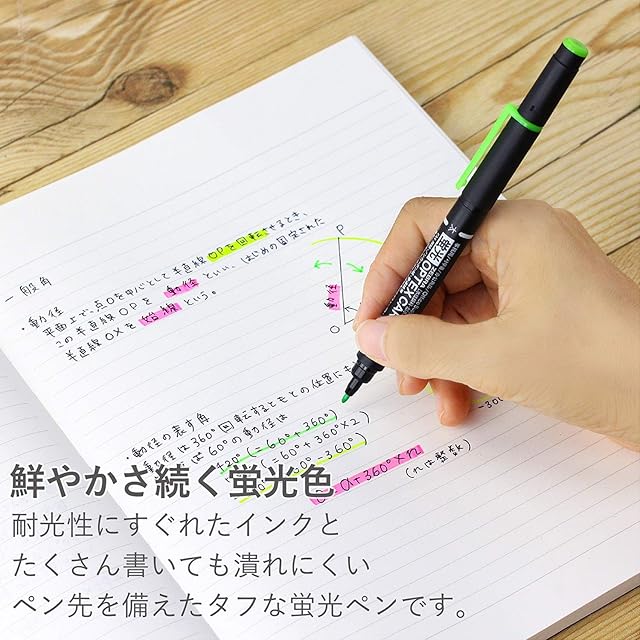 一般角
・動径
平面上で、点Oを中心として半直線OPを回転させるとき、
この半直線OPを 動径 といい、はじめの固定された
半直線OXを 始線 という。
P
動径
O
・動径の表す角
動径は360°回転するともとの位置にも
は60°の動径は
420° (=60°+360°)
=60°+360°×2)
-360°)
-300
α+360°×n
(nは整数)
太
蛍光 OPTEX CA
鮮やかさ続く蛍光色
耐光性にすぐれたインクと
たくさん書いても潰れにくい
ペン先を備えたタフな蛍光ペンです。